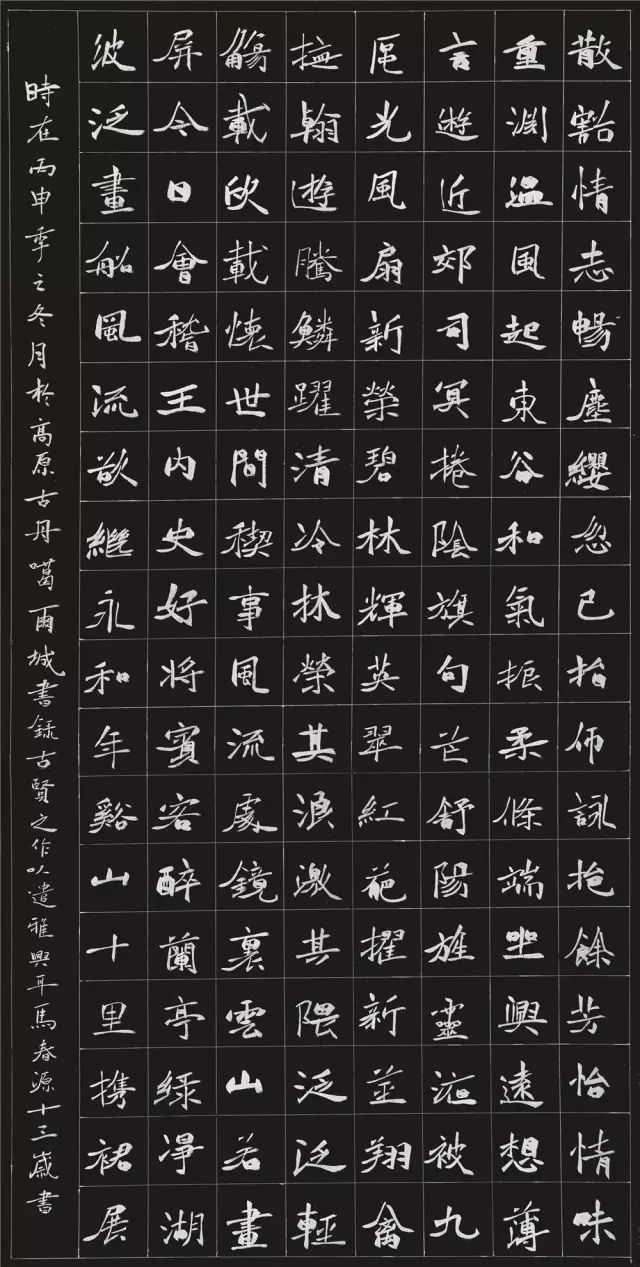 散豁情志暢塵纓忽已捐仰詠挹餘芳怡情味
重淵溫風起東谷和氣振柔條端坐興遠想薄
言遊近郊司冥捲陰旗句芒舒陽旌靈液被九
區光風扇新榮碧林輝英翠紅葩擢新莖翔禽
撫翰遊騰鱗躍清冷林榮其浪激其隈泛泛輕
觴載欣載懷世間禊事風流處鏡裏雲山若畫
屏今日會稽王內史好將賓客醉蘭亭綠淨湖
波泛畫船風流欲繼永和年谿山十里携裙展
時在丙申秊之冬月於高原古丹噶爾城書錄古賢之作以遣雅興耳馬春源十三歲書